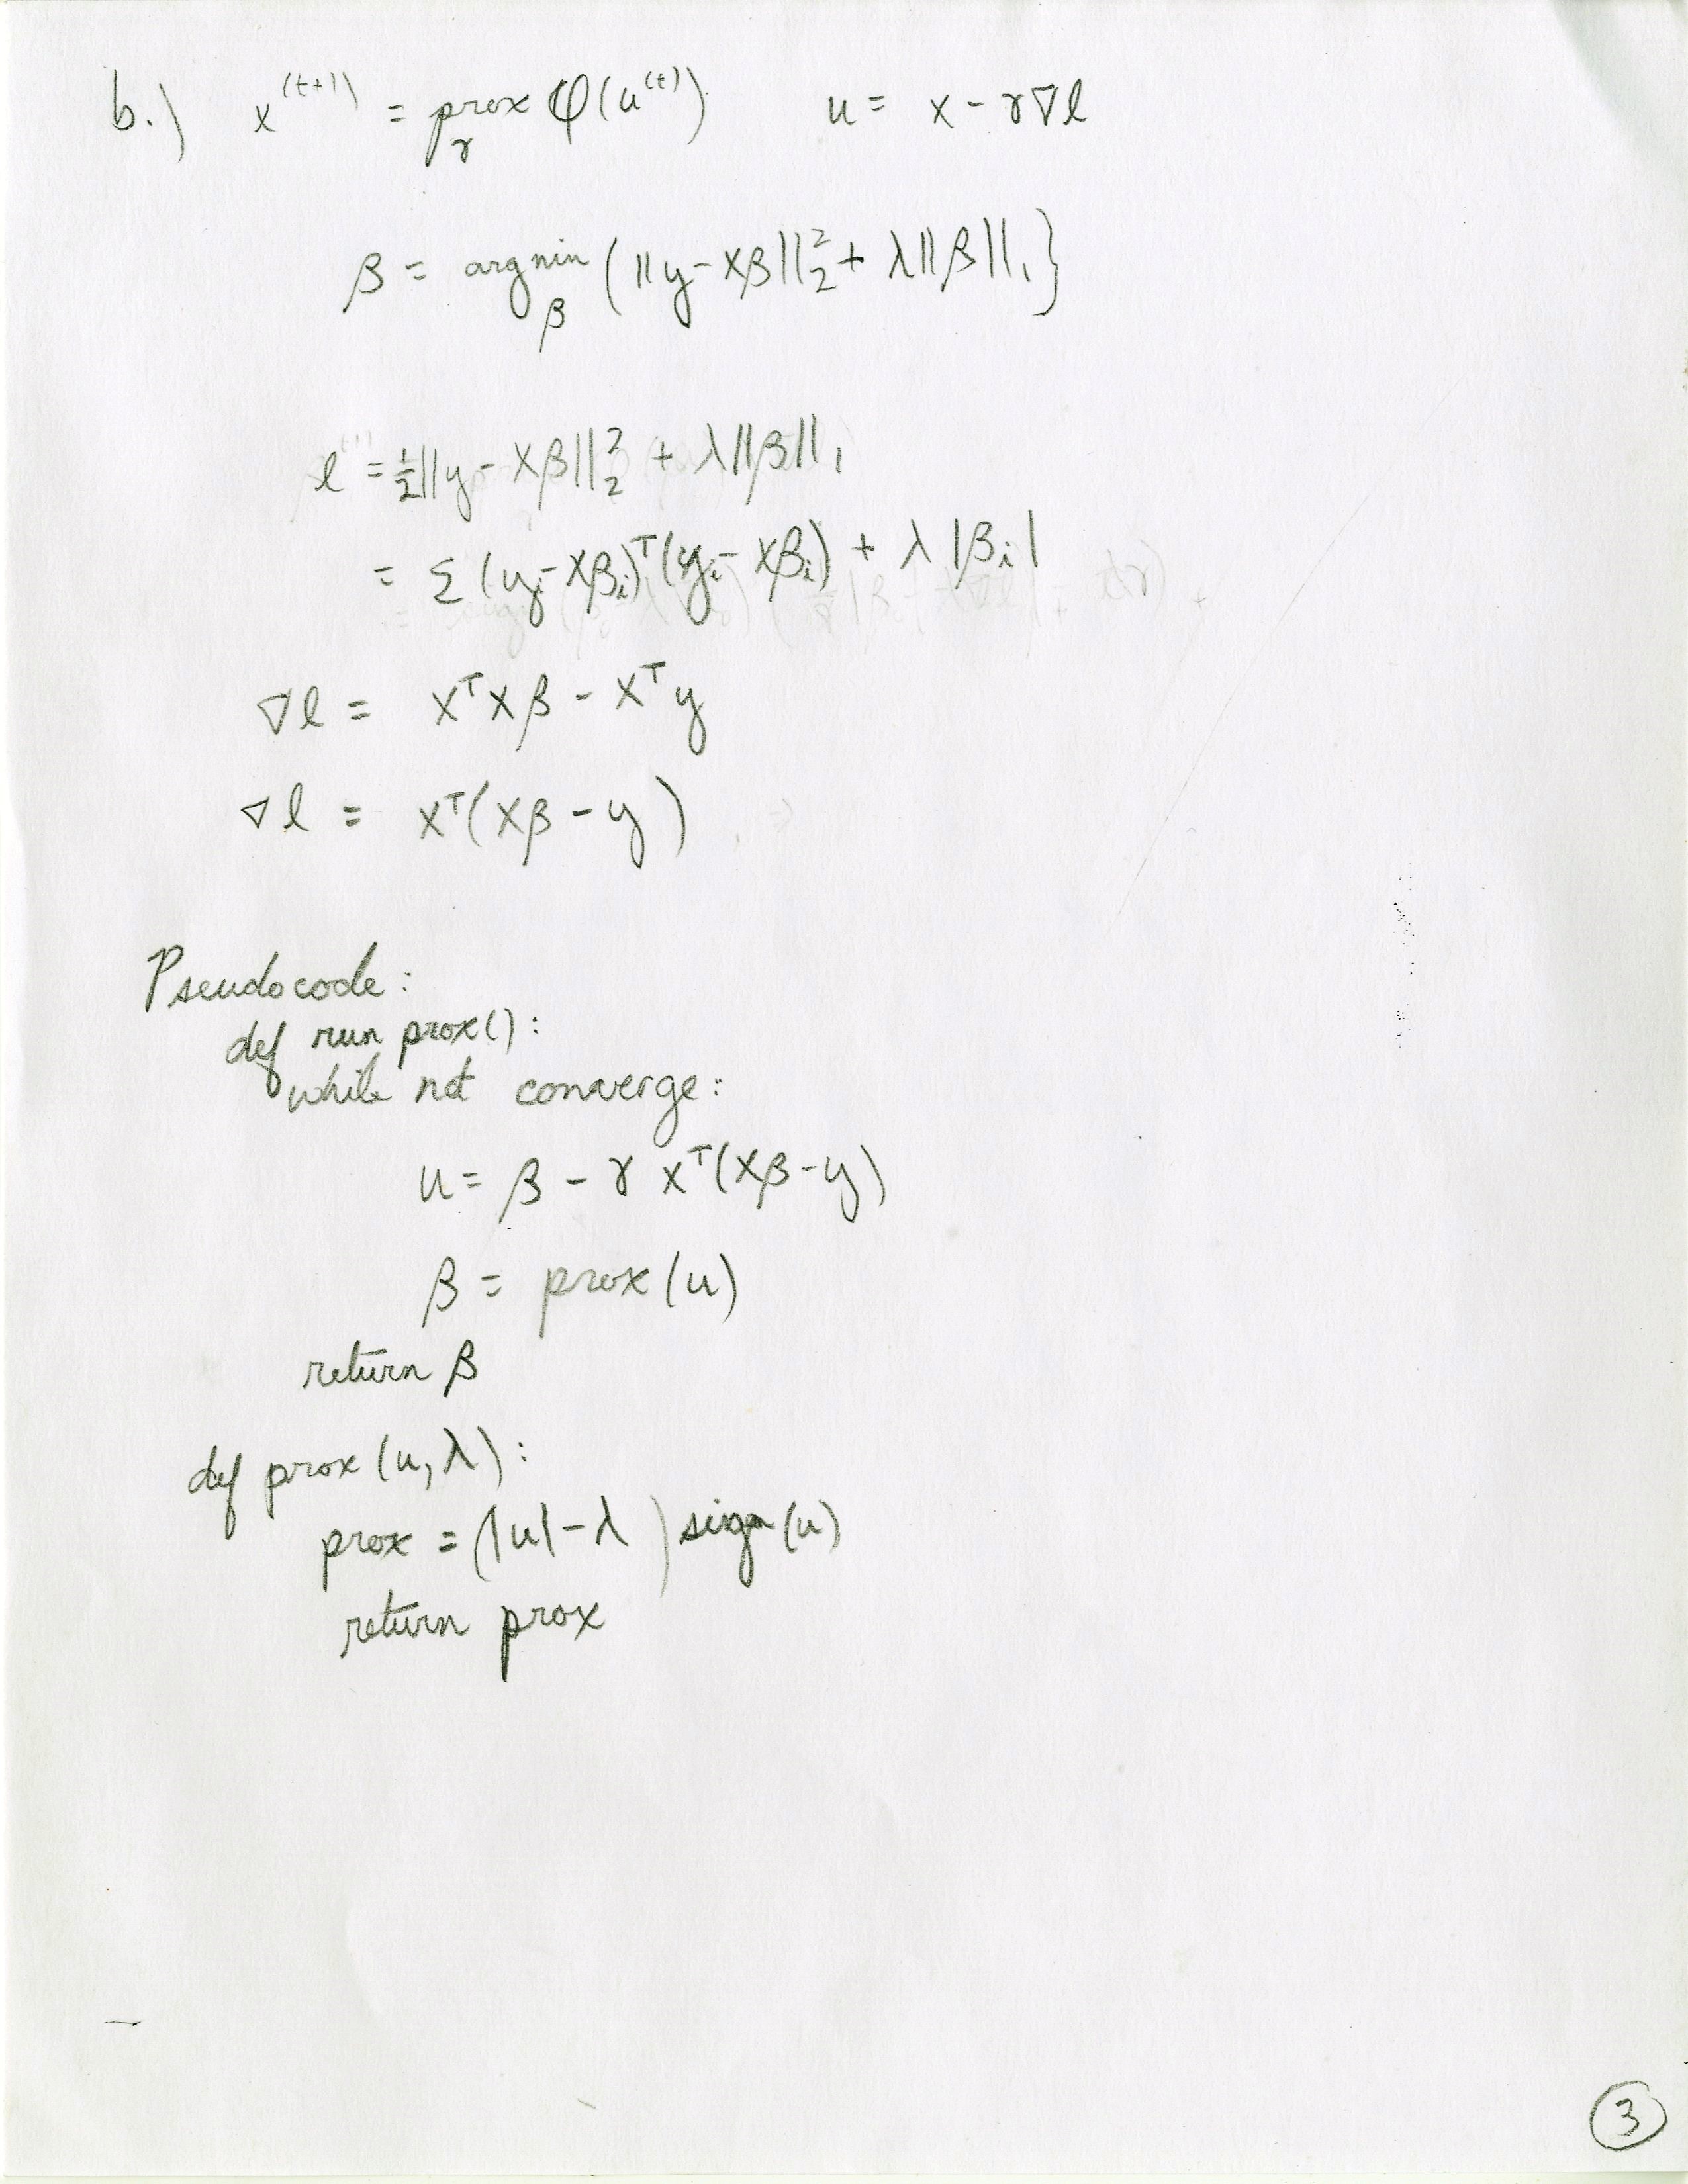 b.) x^(t+1) = prox_γ φ(u^(t)) u = x - γ∇l
β = argmin_β (||y-Xβ||₂² + λ||β||₁}
l = ½||y-Xβ||₂² + λ||β||₁
= Σ (y_i-Xβ_i)^T(y_i-Xβ_i) + λ|β_i|
∇l = X^TXβ - X^Ty
∇l = X^T(Xβ - y)
Pseudocode:
def run prox():
while not converge:
u = β - γ X^T(Xβ-y)
β = prox(u)
return β
def prox(u,λ):
prox = (|u|-λ) sign(u)
return prox
3